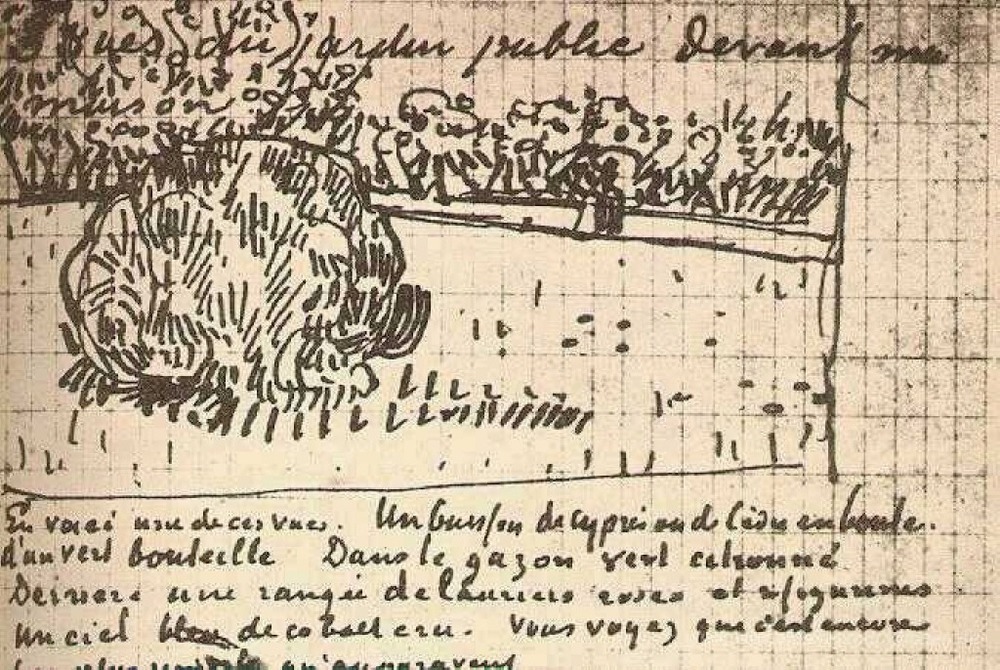 vues du jardin public devant ma
maison
En voici une de ces vues. Un buisson de cyprès ou de cèdre en boule.
d'un vert bouteille Dans le gazon vert citronné
Derriere une rangée de lauriers roses et
un ciel bleu de cobalt cru. Vous voyez que c'est encore
plus simple qu'auparavant